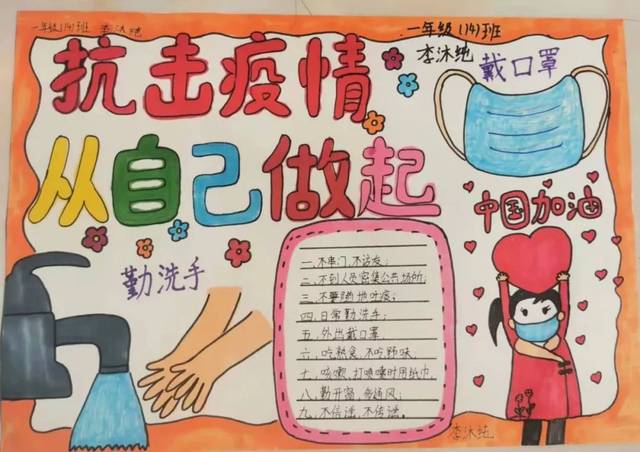 一年级（14）班 李沐纯
一年级（14）班
李沐纯
抗击疫情
从自己做起
戴口罩
中国加油
勤洗手
一、不串门，不访友；
二、不到人员密集公共场所；
三、不要随地吐痰；
四、日常勤洗手；
五、外出戴口罩
六、吃熟食，不吃野味，
七、咳嗽，打喷嚏时用纸巾，
八、勤开窗，多通风；
九、不信谣，不传谣。
李沐纯